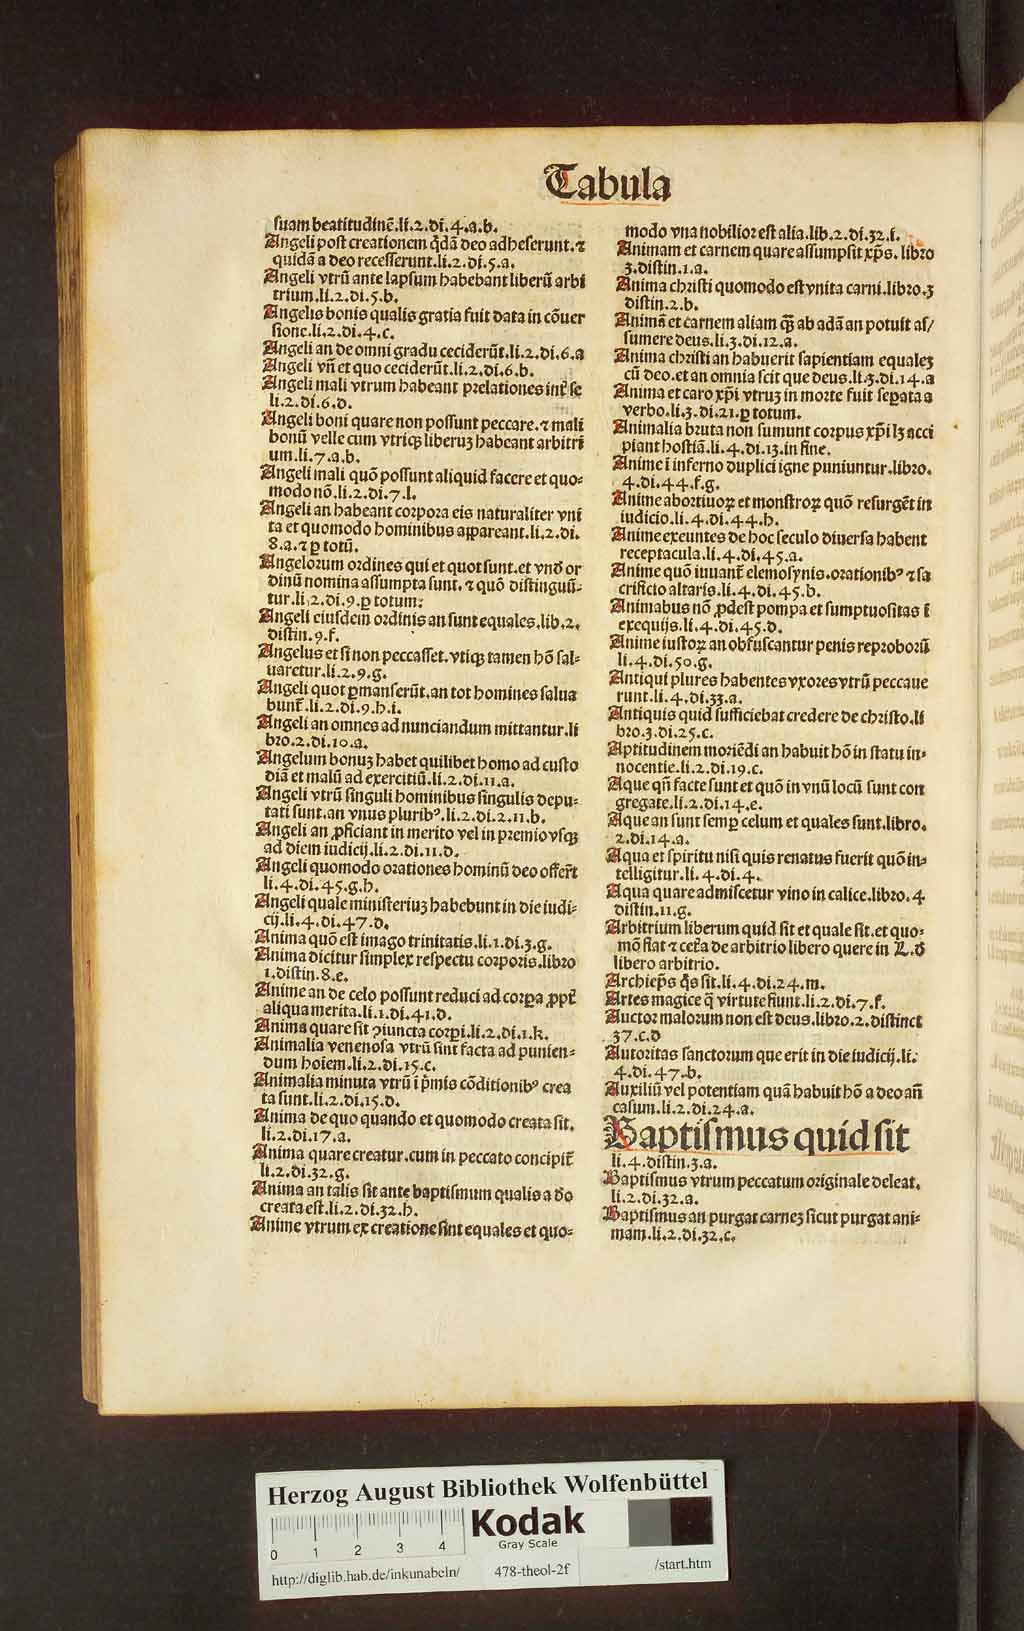 Tabula
suam beatitudinē.li.2.di.4.a.b.
Angeli post creationem q̄dā deo adheserunt.⁊
quidā a deo recesserunt.li.2.di.5.a.
Angeli vtrū ante lapsum habebant liberū arbi
trium.li.2.di.5.b.
Angelis bonis qualis gratia fuit data in cōuer
sione.li.2.di.4.c.
Angeli an de omni gradu ceciderūt.li.2.di.6.a
Angeli vñ et quo ceciderūt.li.2.di.6.b.
Angeli mali vtrum habeant prelationes int̄ se
li.2.di.6.d.
Angeli boni quare non possunt peccare.⁊ mali
bonū velle cum vtriqꝫ liberuꝫ habeant arbitri
um.li.7.a.b.
Angeli mali quō possunt aliquid facere et quo⸗
modo nō.li.2.di.7.l.
Angeli an habeant corpora eis naturaliter vni
ta et quomodo hominibus appareant.li.2.di.
8.a.⁊ ꝑ totū.
Angelorum ordines qui et quot sunt.et vnď or
dinū nomina assumpta sunt.⁊ quō distinguū⸗
tur.li.2.di.9.ꝑ totum:
Angeli eiusdem ordinis an sunt equales.lib.2.
distin.9.f.
Angelus et si non peccasset.vtiqꝫ tamen hō sal⸗
uaretur.li.2.9.g.
Angeli quot ꝑmanserūt.an tot homines salua
bunt̄.li.2.di.9.h.i.
Angeli an omnes ad nunciandum mittantur.li
bro.2.di.10.a.
Angelum bonuꝫ habet quilibet homo ad custo
diā et malū ad exercitiū.li.2.di.11.a.
Angeli vtrū singuli hominibus singulis depu⸗
tati sunt.an vnus pluribꝰ.li.2.di.2.11.b.
Angeli an ꝓficiant in merito vel in premio vsqꝫ
ad diem iudicij.li.2.di.11.d.
Angeli quomodo orationes hominū deo offerr̄t
li.4.di.45.g.h.
Angeli quale ministeriuꝫ habebunt in die iudi⸗
cij.li.4.di.47.d.
Anima quō est imago trinitatis.li.1.di.3.g.
Anima dicitur simplex respectu corporis.libro
1.distin.8.e.
Anime an de celo possunt reduci ad corꝑa ꝓpt̄
aliqua merita.li.1.di.41.d.
Anima quare sit ꝯiuncta corꝑi.li.2.di.1.k.
Animalia venenosa vtrū sint facta ad punien⸗
dum hoīem.li.2.di.15.c.
Animalia minuta vtrū ī p̄mis cōditionibꝰ crea
ta sunt.li.2.di.15.d.
Anima de quo quando et quomodo creata sit.
li.2.di.17.a.
Anima quare creatur.cum in peccato concipit̄
li.2.di.32.g.
Anima an talis sit ante baptismum qualis a do
creata est.li.2.di.32.h.
Anime vtrum ex creatione sint equales et quo⸗
modo vna nobilior est alia.lib.2.di.32.i.
Animam et carnem quare assumpsit xp̄s.libro
3.distin.1.a.
Anima christi quomodo est vnita carni.libro.3
distin.2.b.
Animā et carnem aliam qꝫ̄ ab adā an potuit as/
sumere deus.li.3.di.12.a.
Anima christi an habuerit sapientiam equaleꝫ
cū deo.et an omnia scit que deus.li.3.di.14.a
Anima et caro xp̄i vtruꝫ in morte fuit seꝑata a
verbo.li.3.di.21.ꝑ totum.
Animalia bruta non sumunt corpus xp̄i lꝫ acci
piant hostiā.li.4.di.13.in fine.
Anime ī inferno duplici igne puniuntur.libro.
4.di.44.f.g.
Anime abortiuoꝝ et monstroꝝ quō resurgēt in
iudicio.li.4.di.44.h.
Anime exeuntes de hoc seculo diuersa habent
receptacula.li.4.di.45.a.
Anime quō iuuant̄ elemosynis.orationibꝰ ⁊ sa
crificio altaris.li.4.di.45.b.
Animabus nō ꝓdest pompa et sumptuositas ī
exequijs.li.4.di.45.d.
Anime iustoꝝ an obfuscantur penis reproborū
li.4.di.50.g.
Antiqui plures habentes vxores vtrū peccaue
runt.li.4.di.33.a.
Antiquis quid sufficiebat credere de christo.li
bro.3.di.25.c.
Aptitudinem moriēdi an habuit hō in statu in⸗
nocentie.li.2.di.19.c.
Aque qn̄ facte sunt et quō in vnū locū sunt con
gregate.li.2.di.14.e.
Aque an sunt semꝑ celum et quales sunt.libro.
2.di.14.a.
Aqua et spiritu nisi quis renatus fuerit quō in⸗
telligitur.li.4.di.4.
Aqua quare admiscetur vino in calice.libro.4
distin.11.g.
Arbitrium liberum quid sit et quale sit.et quo⸗
mō fiat ⁊ cet̄a de arbitrio libero quere in L.ď
libero arbitrio.
Archiep̄s q̄s sit.li.4.di.24.m.
Artes magice q̄ virtute fiunt.li.2.di.7.f.
Auctor malorum non est deus.libro.2.distinct
37.c.d
Autoritas sanctorum que erit in die iudicij.li.
4.di.47.b.
Auxiliū vel potentiam quā habuit hō a deo an̄
casum.li.2.di.24.a.
Baptismus quid sit
li.4.distin.3.a.
Baptismus vtrum peccatum originale deleat.
li.2.di.32.a.
Baptismus an purgat carneꝫ sicut purgat ani⸗
mam.li.2.di.32.c.
Herzog August Bibliothek Wolfenbüttel
Kodak
Gray Scale
0 1 2 3 4
http://diglib.hab.de/inkunabeln/ 478-theol-2f /start.htm